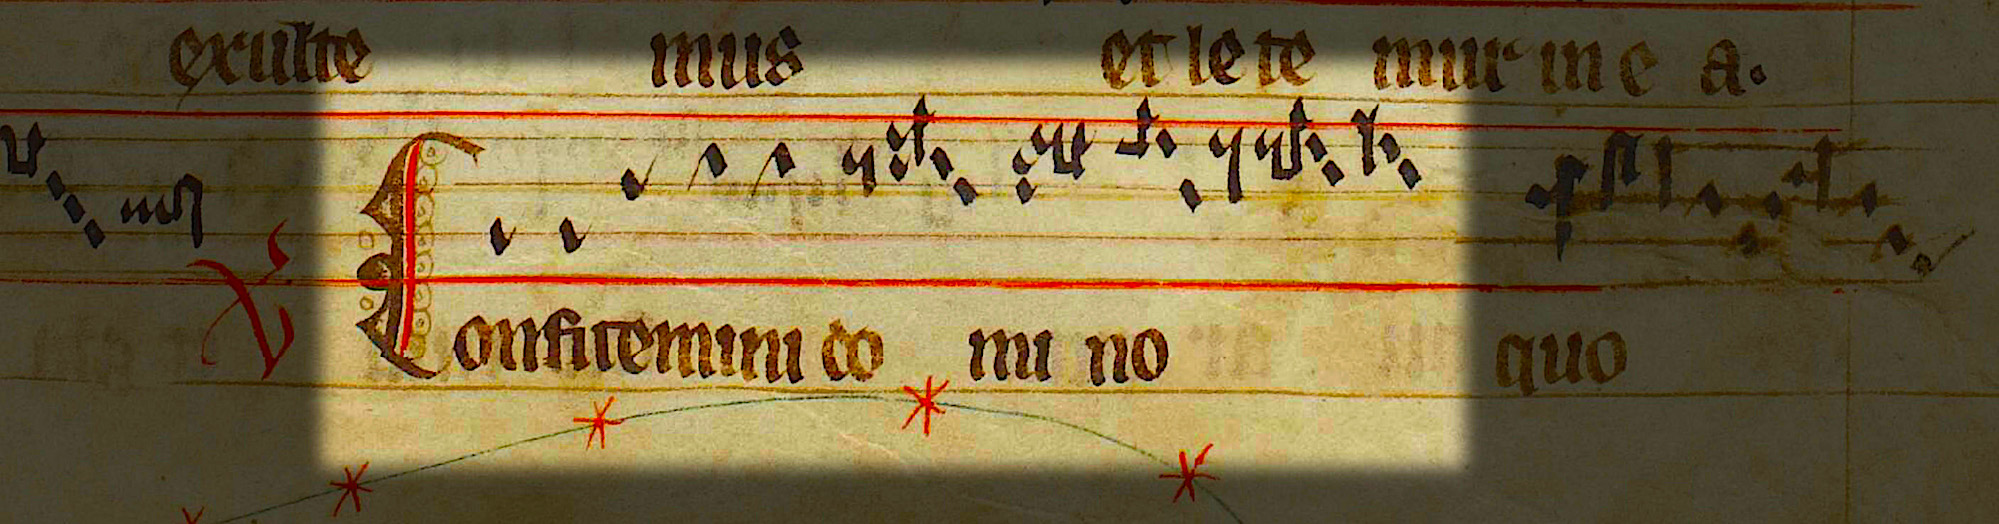 exulte mus et le te mur in e a.
V Confitemini do mi no quo